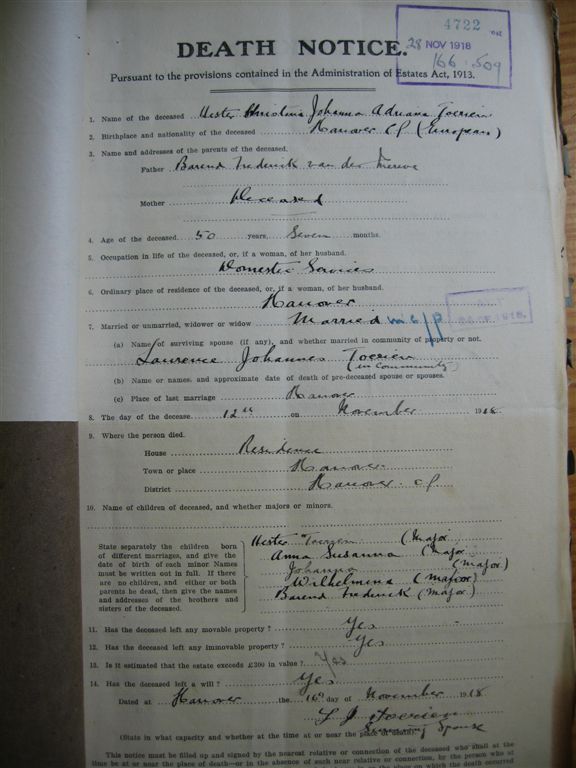 4722
28 NOV 1918
166 . 509
DEATH NOTICE.
Pursuant to the provisions contained in the Administration of Estates Act, 1913.
1. Name of the deceased Hester Christina Johanna Adriana Toerien
2. Birthplace and nationality of the deceased Hanover CP (European)
3. Name and addresses of the parents of the deceased.
Father Barend Frederick van der Merwe
Mother Deceased
4. Age of the deceased 50 years, Seven months.
5. Occupation in life of the deceased, or, if a woman, of her husband.
Domestic Services
6. Ordinary place of residence of the deceased, or, if a woman, of her husband.
Hanover
7. Married or unmarried, widower or widow Married
1918.
(a) Name of surviving spouse (if any), and whether married in community of property or not.
Laurence Johannes Toerien
(in Community)
(b) Name or names, and approximate date of death of pre-deceased spouse or spouses.
(c) Place of last marriage Hanover
8. The day of the decease 12th on November 1918.
9. Where the person died.
House Residence
Town or place Hanover
District Hanover CP
10. Name of children of deceased, and whether majors or minors.
State separately the children born of different marriages, and give the date of birth of each minor. Names must be written out in full. If there are no children, and either or both parents be dead, then give the names and addresses of the brothers and sisters of the deceased.
Hester Toerien (Major
Anna Susanna (Major
Johanna (Major)
Wilhelmina (Major)
Barend Frederick (Major)
11. Has the deceased left any movable property? Yes
12. Has the deceased left any immovable property? Yes
13. Is it estimated that the estate exceeds £300 in value? Yes
14. Has the deceased left a will? Yes
Dated at Hanover the 16th day of November 1918
L J Toerien
Surviving Spouse
(State in what capacity and whether at the time at or near the place of death).
This notice must be filled up and signed by the nearest relative or connection of the deceased who shall at the
time be at or near the place of death—or in the absence of such near relative or connection, by the person who at